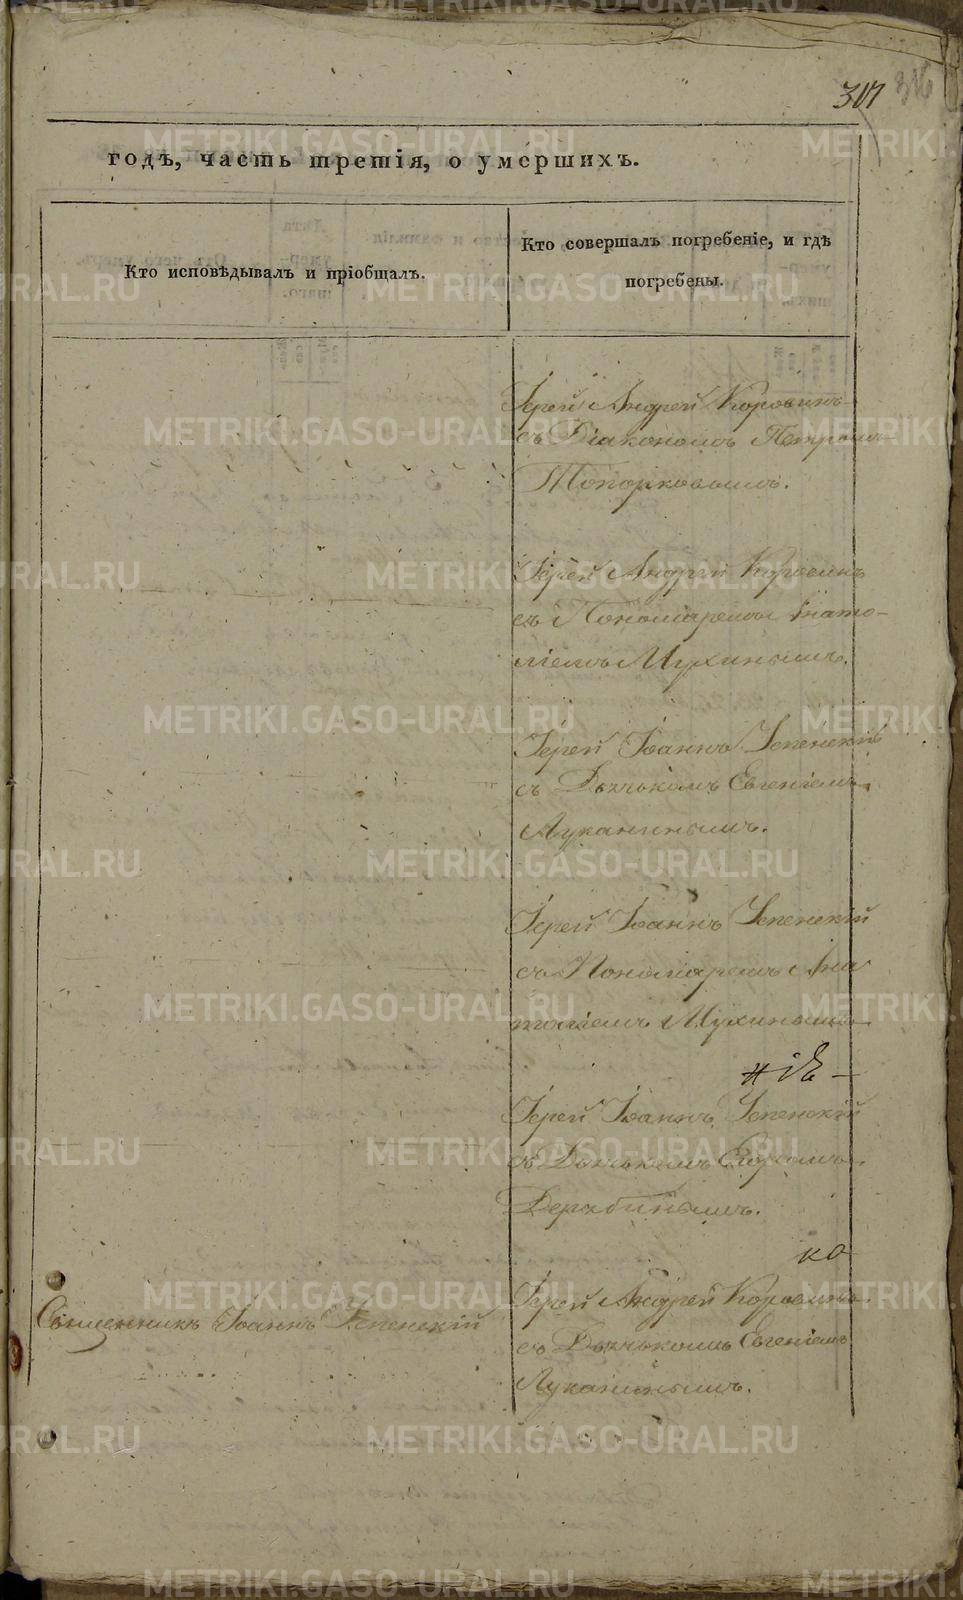 307
316
годѣ, часть третія, о умершихъ.
Кто исповѣдывалъ и пріобщалъ.
Кто совершалъ погребеніе, и гдѣ
погребены.
Іерей Андрей Коровинъ
съ Діакономъ Петромъ
Топорковымъ.
Іерей Андрей Коровинъ
съ Пономаремъ Анато-
ліемъ Мухинымъ.
Іерей Іоаннъ Успенскій
съ Дьячкомъ Евгеніемъ
Луканинымъ.
Іерей Іоаннъ Успенскій
съ Пономаремъ Ана
толіемъ Мухинымъ
Іерей Іоаннъ Успенскій
съ Дьячькомъ Егоромъ
Дерябинымъ.
ко
Священникъ Іоаннъ Успенскій
Іерей Андрей Коровинъ
съ Дьячькомъ Евгеніемъ
Луканинымъ.
METRIKI.GASO-URAL.RU